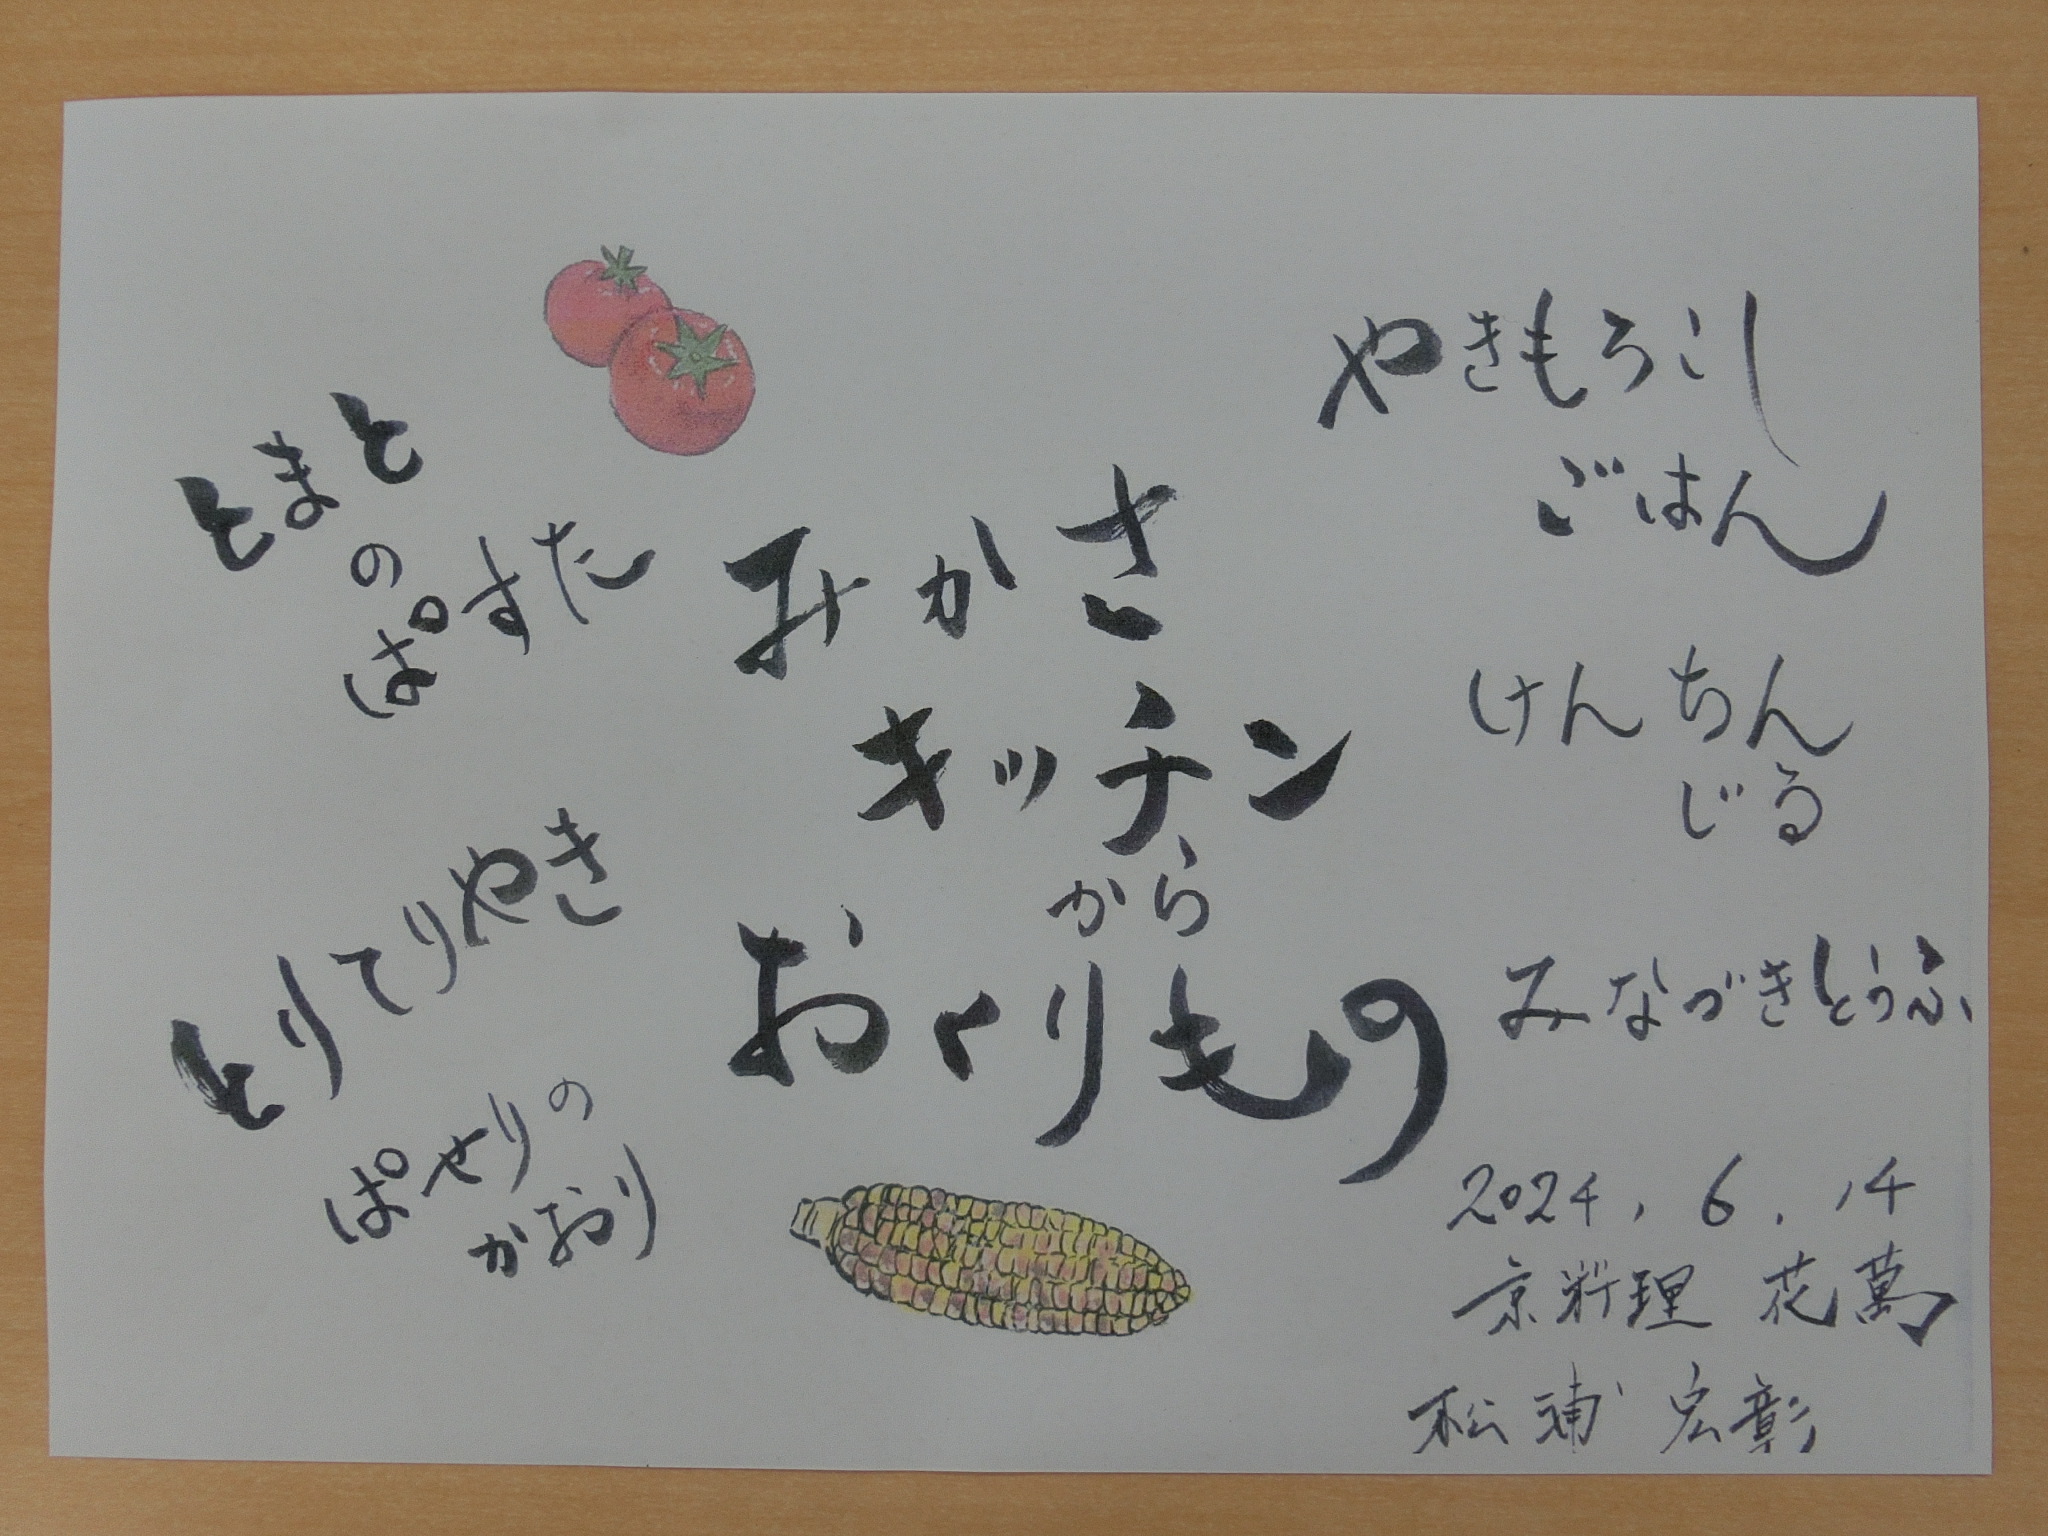 とまと
の
ぱすた
とりてりやき
ぱせりの
かおり
みかさ
キッチン
から
おくりもの
やきもろこし
ごはん
けんちん
じる
みなづきとうふ
2024.6.14
京料理 花萬
松浦 宏彰